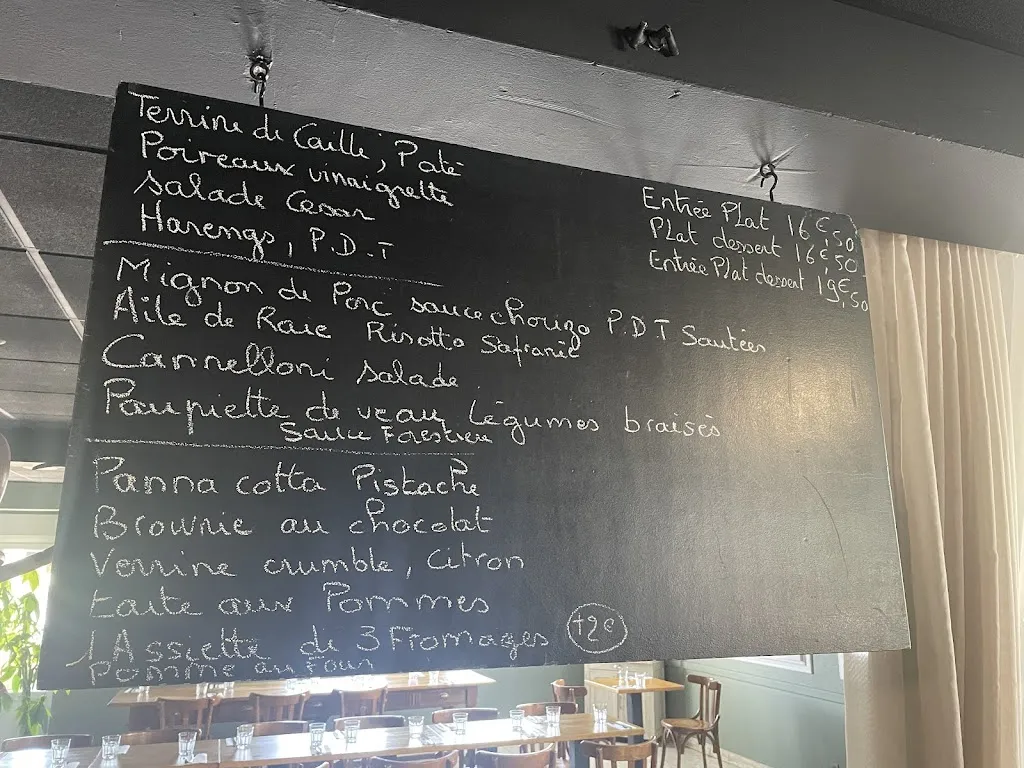 Terrine de Caille, Paté
Poireaux vinaigrette
salade Cesar
Harengs, P.D.T
Entrée Plat 16€,50
Plat dessert 16€,50
Entrée Plat dessert 19€,50
Mignon de Porc sauce chorizo P.D.T Sautées
Aile de Raie Risotto Safranié
Cannelloni salade
Paupiette de veau Légumes braisés
Sauce Forestière
Panna cotta Pistache
Brownie au chocolat
Verrine crumble, Citron
tarte aux Pommes
1 Assiette de 3 Fromages +2€
Pomme au Four